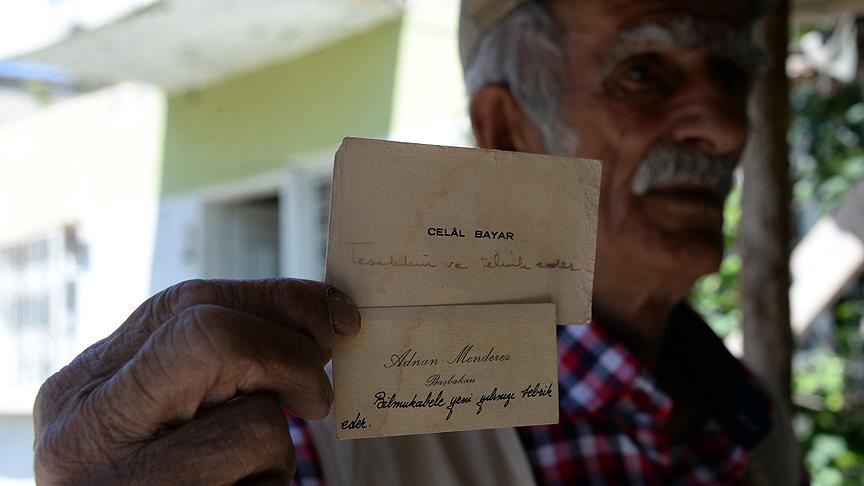 CELÂL BAYAR
Teşekkür ve tebrik eder
Adnan Menderes
Başbakan
Bilmukabele yeni yılınızı tebrik
eder.